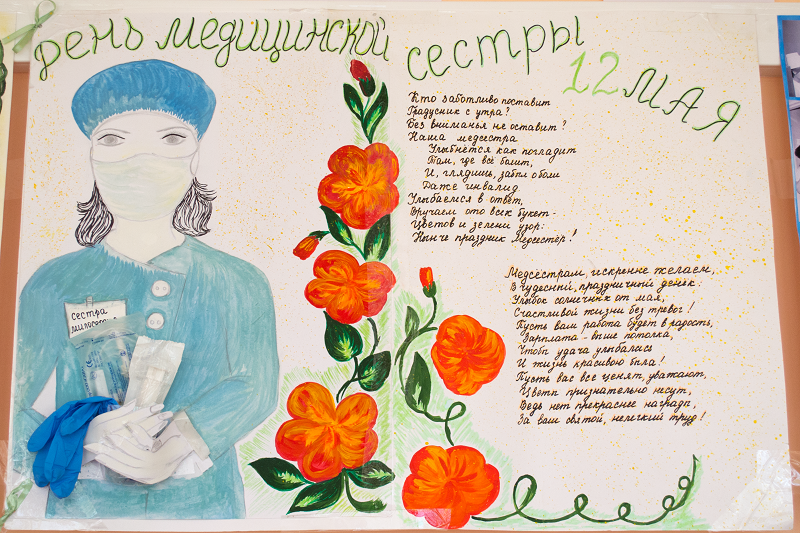 День медицинской сестры
12 мая
сестра
милосерд
Кто заботливо поставит
Градусник с утра?
Без вниманья не оставит?
Наша медсестра
Улыбнётся как погладит
Там, где всё болит,
И, глядишь, забыл о боли
Даже инвалид.
Улыбаемся в ответ,
Вручаем ото всех букет-
Цветов и зелени узор:
Нынче праздник Медсестёр!
Медсёстрам искренне желаем,
В чудесный, праздничный денёк:
Улыбок солнечных от мая,
Счастливой жизни без тревог!
Пусть вам работа будет в радость,
Зарплата - выше потолка,
Чтобы удача улыбалась
И жизнь красивою была!
Пусть вас все ценят, уважают,
Цветы признательно несут,
Ведь нет прекраснее награды,
За ваш святой, нелёгкий труд!